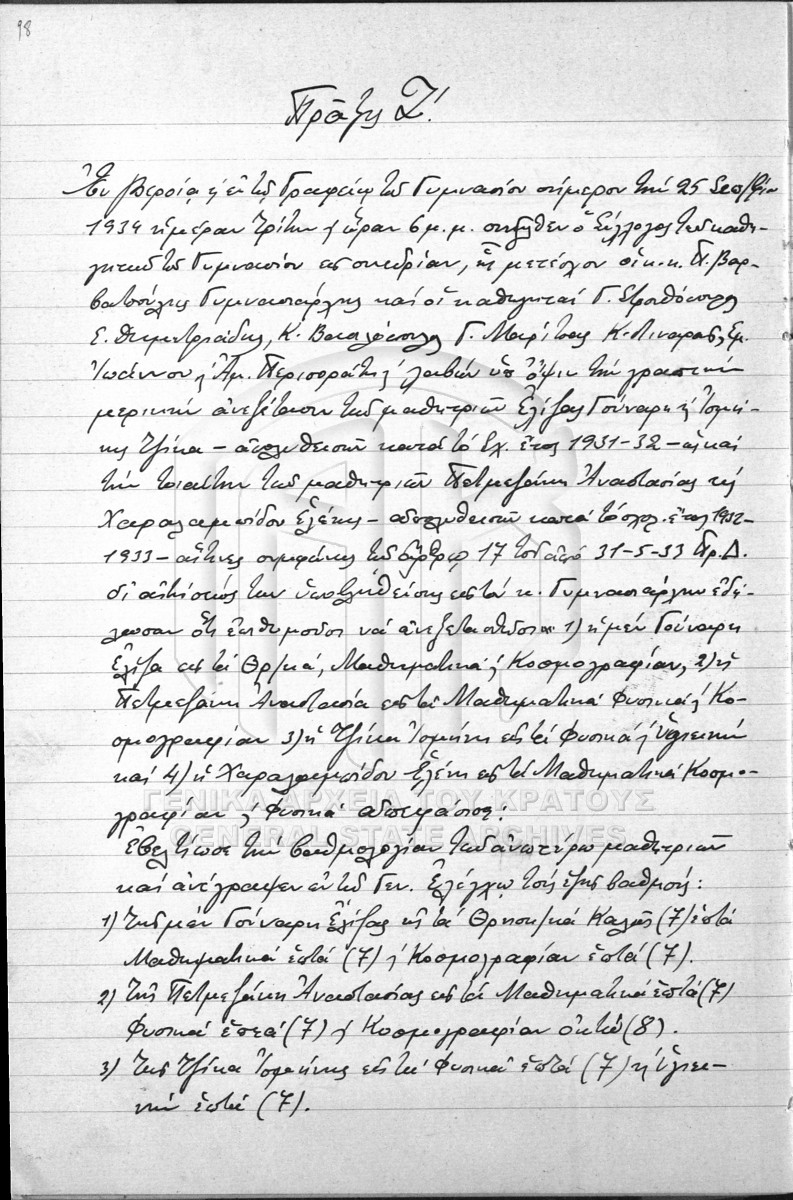 98
Πρᾶξις Ζ΄.
Ἐν Βεροίᾳ ἐν τῷ Γραφείῳ τοῦ Γυμνασίου σήμερον τὴν 25 Σεπ/βρίου
1934 ἡμέραν Τρίτην ὥραν 6 μ.μ. συνῆλθεν ὁ Σύλλογος τῶν καθη-
γητῶν τοῦ Γυμνασίου εἰς συνεδρίαν, ἧς μετέσχον οἱ κ.κ. Π. Βαρ-
βατσούλης Γυμνασιάρχης καὶ οἱ καθηγηταὶ Γ.
Ε. Δημητριάδης, Κ. Γ. Κ. Λιναρας, Εμ.
Ἰωάννου Ἀμ. λαβὼν ὑπ' ὄψιν τὴν γραπτὴν
μερικὴν ἀνεξέτασιν τῶν μαθητριῶν Ἐλίζας Γούναρη ἢ Ἰσμή-
νης Τζίκα – ἀπολυθεισῶν κατὰ τὸ σχ. ἔτος 1931-32 – ὡς καὶ
τὴν τοιαύτην τῶν μαθητριῶν Πετμεζάκη Ἀναστασίας
Χαραλαμπίδου Ἑλένης – ἀπολυθεισῶν κατὰ τὸ σχολ. ἔτος 1932-
1933 – αἵτινες συμφώνως τῷ ἄρθρῳ 17 τοῦ ἀπὸ 31-5-33 Πρ. Δ.
δι' αἰτήσεώς των ὑποβληθείσης εἰς τὸν κ. Γυμνασιάρχην ἐδή-
λωσαν ὅτι ἐπιθυμοῦσι νὰ ἀνεξετασθῶσι 1) ἡ μὲν Γούναρη
Ἐλίζα εἰς τὰ Θρ/κά, Μαθηματικά Κοσμογραφίαν, 2) ἡ
Πετμεζάκη Ἀναστασία εἰς τὰ Μαθηματικὰ Φυσικὰ Κο-
σμογραφίαν 3) ἡ Τζίκα Ἰσμήνη εἰς τὰ Φυσικὰ Ὑγιεινὴν
καὶ 4) ἡ Χαραλαμπίδου Ἑλένη εἰς τὰ Μαθηματικὰ Κοσμο-
γραφίαν Φυσικὰ ἀποφάσισε:
Ἐβελτίωσε τὴν βαθμολογίαν τῶν ἀνωτέρω μαθητριῶν
καὶ ἀνέγραψεν ἐν τῷ Γεν. Ἐλέγχῳ τοὺς ἑξῆς βαθμούς:
1) Τῆς μὲν Γούναρη Ἐλίζας εἰς τὰ Θρησκ/κὰ Καλῶς (7) ἑπτὰ
Μαθηματικὰ ἑπτὰ (7) Κοσμογραφίαν ἑπτὰ (7).
2) Τῆς Πετμεζάκη Ἀναστασίας εἰς τὰ Μαθηματικὰ ἑπτὰ (7)
Φυσικὰ ἑπτὰ (7) Κοσμογραφίαν ὀκτὼ (8).
3) Τῆς Τζίκα Ἰσμήνης εἰς τὰ Φυσικὰ ἑπτὰ (7) Ὑγιει-
νὴν ἑπτὰ (7).
ΓΕΝΙΚΑ ΑΡΧΕΙΑ ΤΟΥ ΚΡΑΤΟΥΣ
GENERAL STATE ARCHIVES